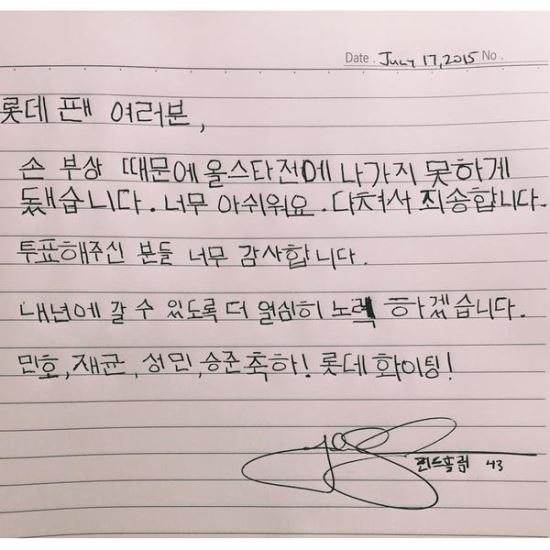 Date. July 17, 2015 No.
롯데 팬 여러분,
손 부상 때문에 올스타전에 나가지 못하게
됐습니다. 너무 아쉬워요. 다쳐서 죄송합니다.
투표해주신 분들 너무 감사합니다.
내년에 갈 수 있도록 더 열심히 노력 하겠습니다.
민호, 재균, 성민, 승준 축하! 롯데 화이팅!
린드블럼 43